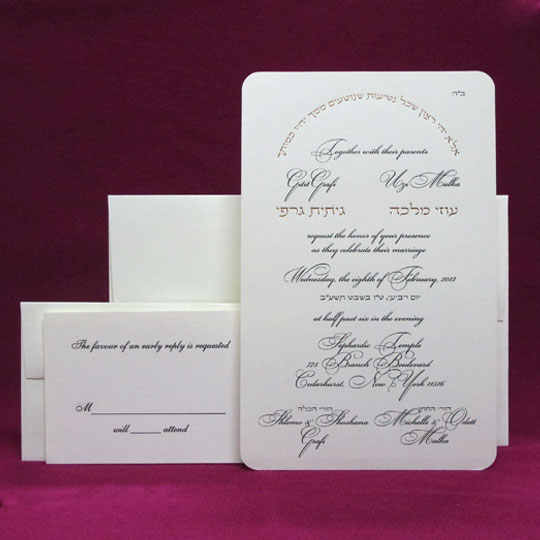 ב"ה
אלא יהי רצון שכל נטיעות שנוטעים ממך יהיו כמותך
Together with their parents
Gitit Grafi Uzi Malka
גיתית גרפי עוזי מלכה
request the honor of your presence
as they celebrate their marriage
Wednesday, the eighth of February, 2012
יום רביעי, ט"ו בשבט תשע"ב
at half past six in the evening
Sephardic Temple
775 Branch Boulevard
Cedarhurst, New York 11516
הורי הכלה הורי החתן
Shlomo & Shoshana Michelle & Odett
Grafi Malka
The favour of an early reply is requested
M
will attend